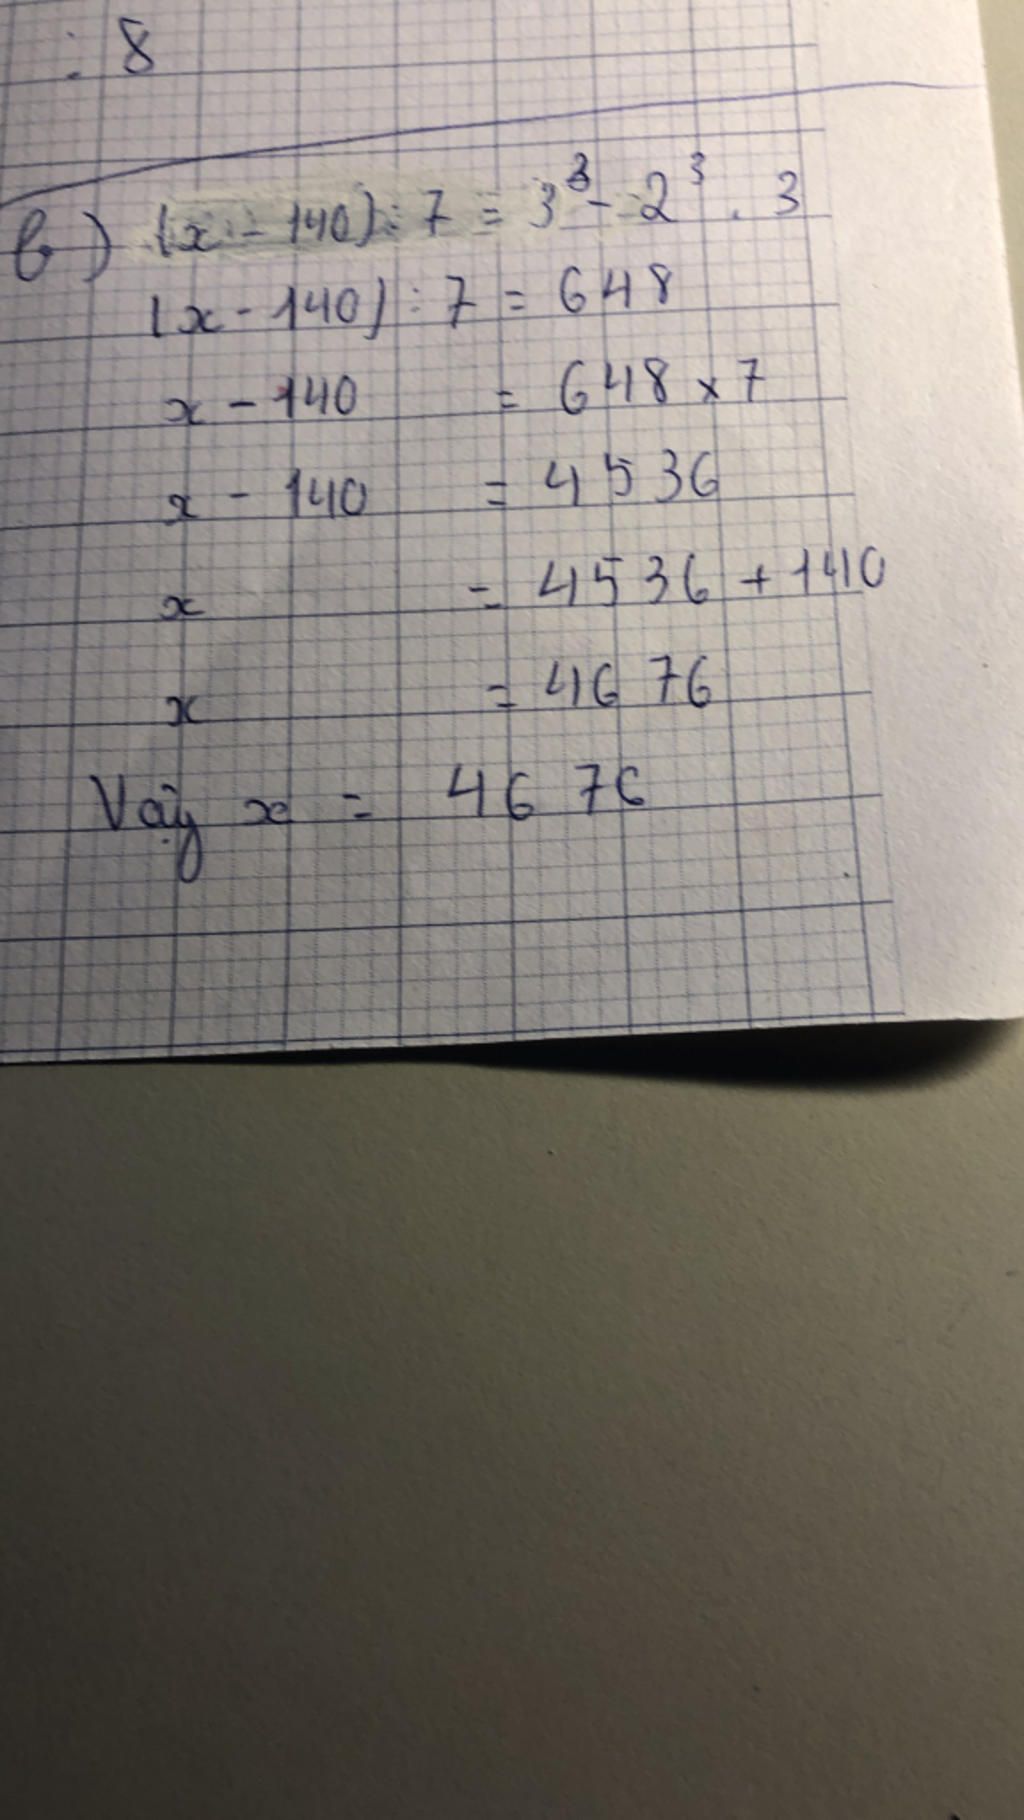 : 8
b) (x - 140) : 7 = 3³ - 2³ . 3
(x - 140) : 7 = 648
x - 140 = 648 x 7
x - 140 = 4536
x = 4536 + 140
x = 4676
Vậy x = 4676